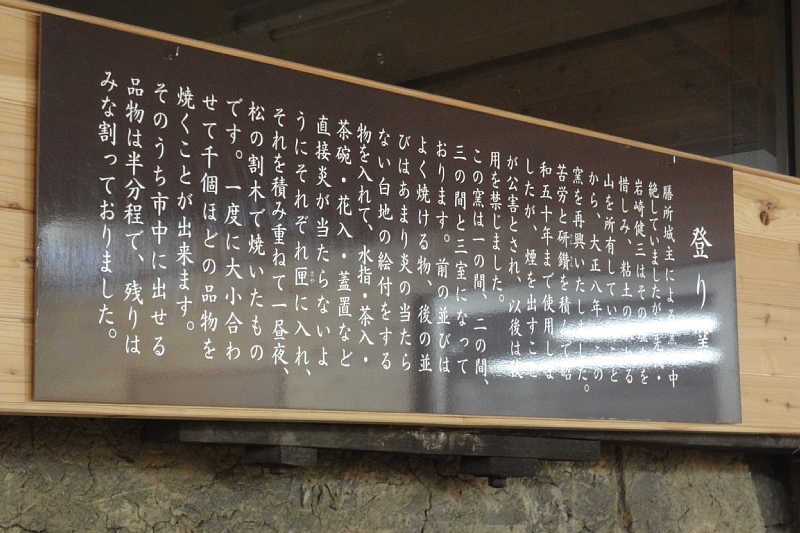 登り窯
膳所城主による窯は中
絶していましたが
岩崎健三はその
惜しみ、粘土の
山を所有している
から、大正八年
窯を再興いたしました。
苦労と研鑽を積んで昭
和五十年まで使用しま
したが、煙を出すこと
が公害とされ、以後は
用を禁じました。
この窯は一の間、二の間、
三の間と三室になって
おります。前の並びは
よく焼ける物、後の並
びはあまり炎の当たら
ない白地の絵付をする
物を入れて、水指・茶入・
茶碗・花入・蓋置など
直接炎が当たらないよ
うにそれぞれ匣に入れ、
それを積み重ねて一昼夜、
松の割木で焼いたもの
です。一度に大小合わ
せて千個ほどの品物を
焼くことが出来ます。
そのうち市中に出せる
品物は半分程で、残りは
みな割っておりました。